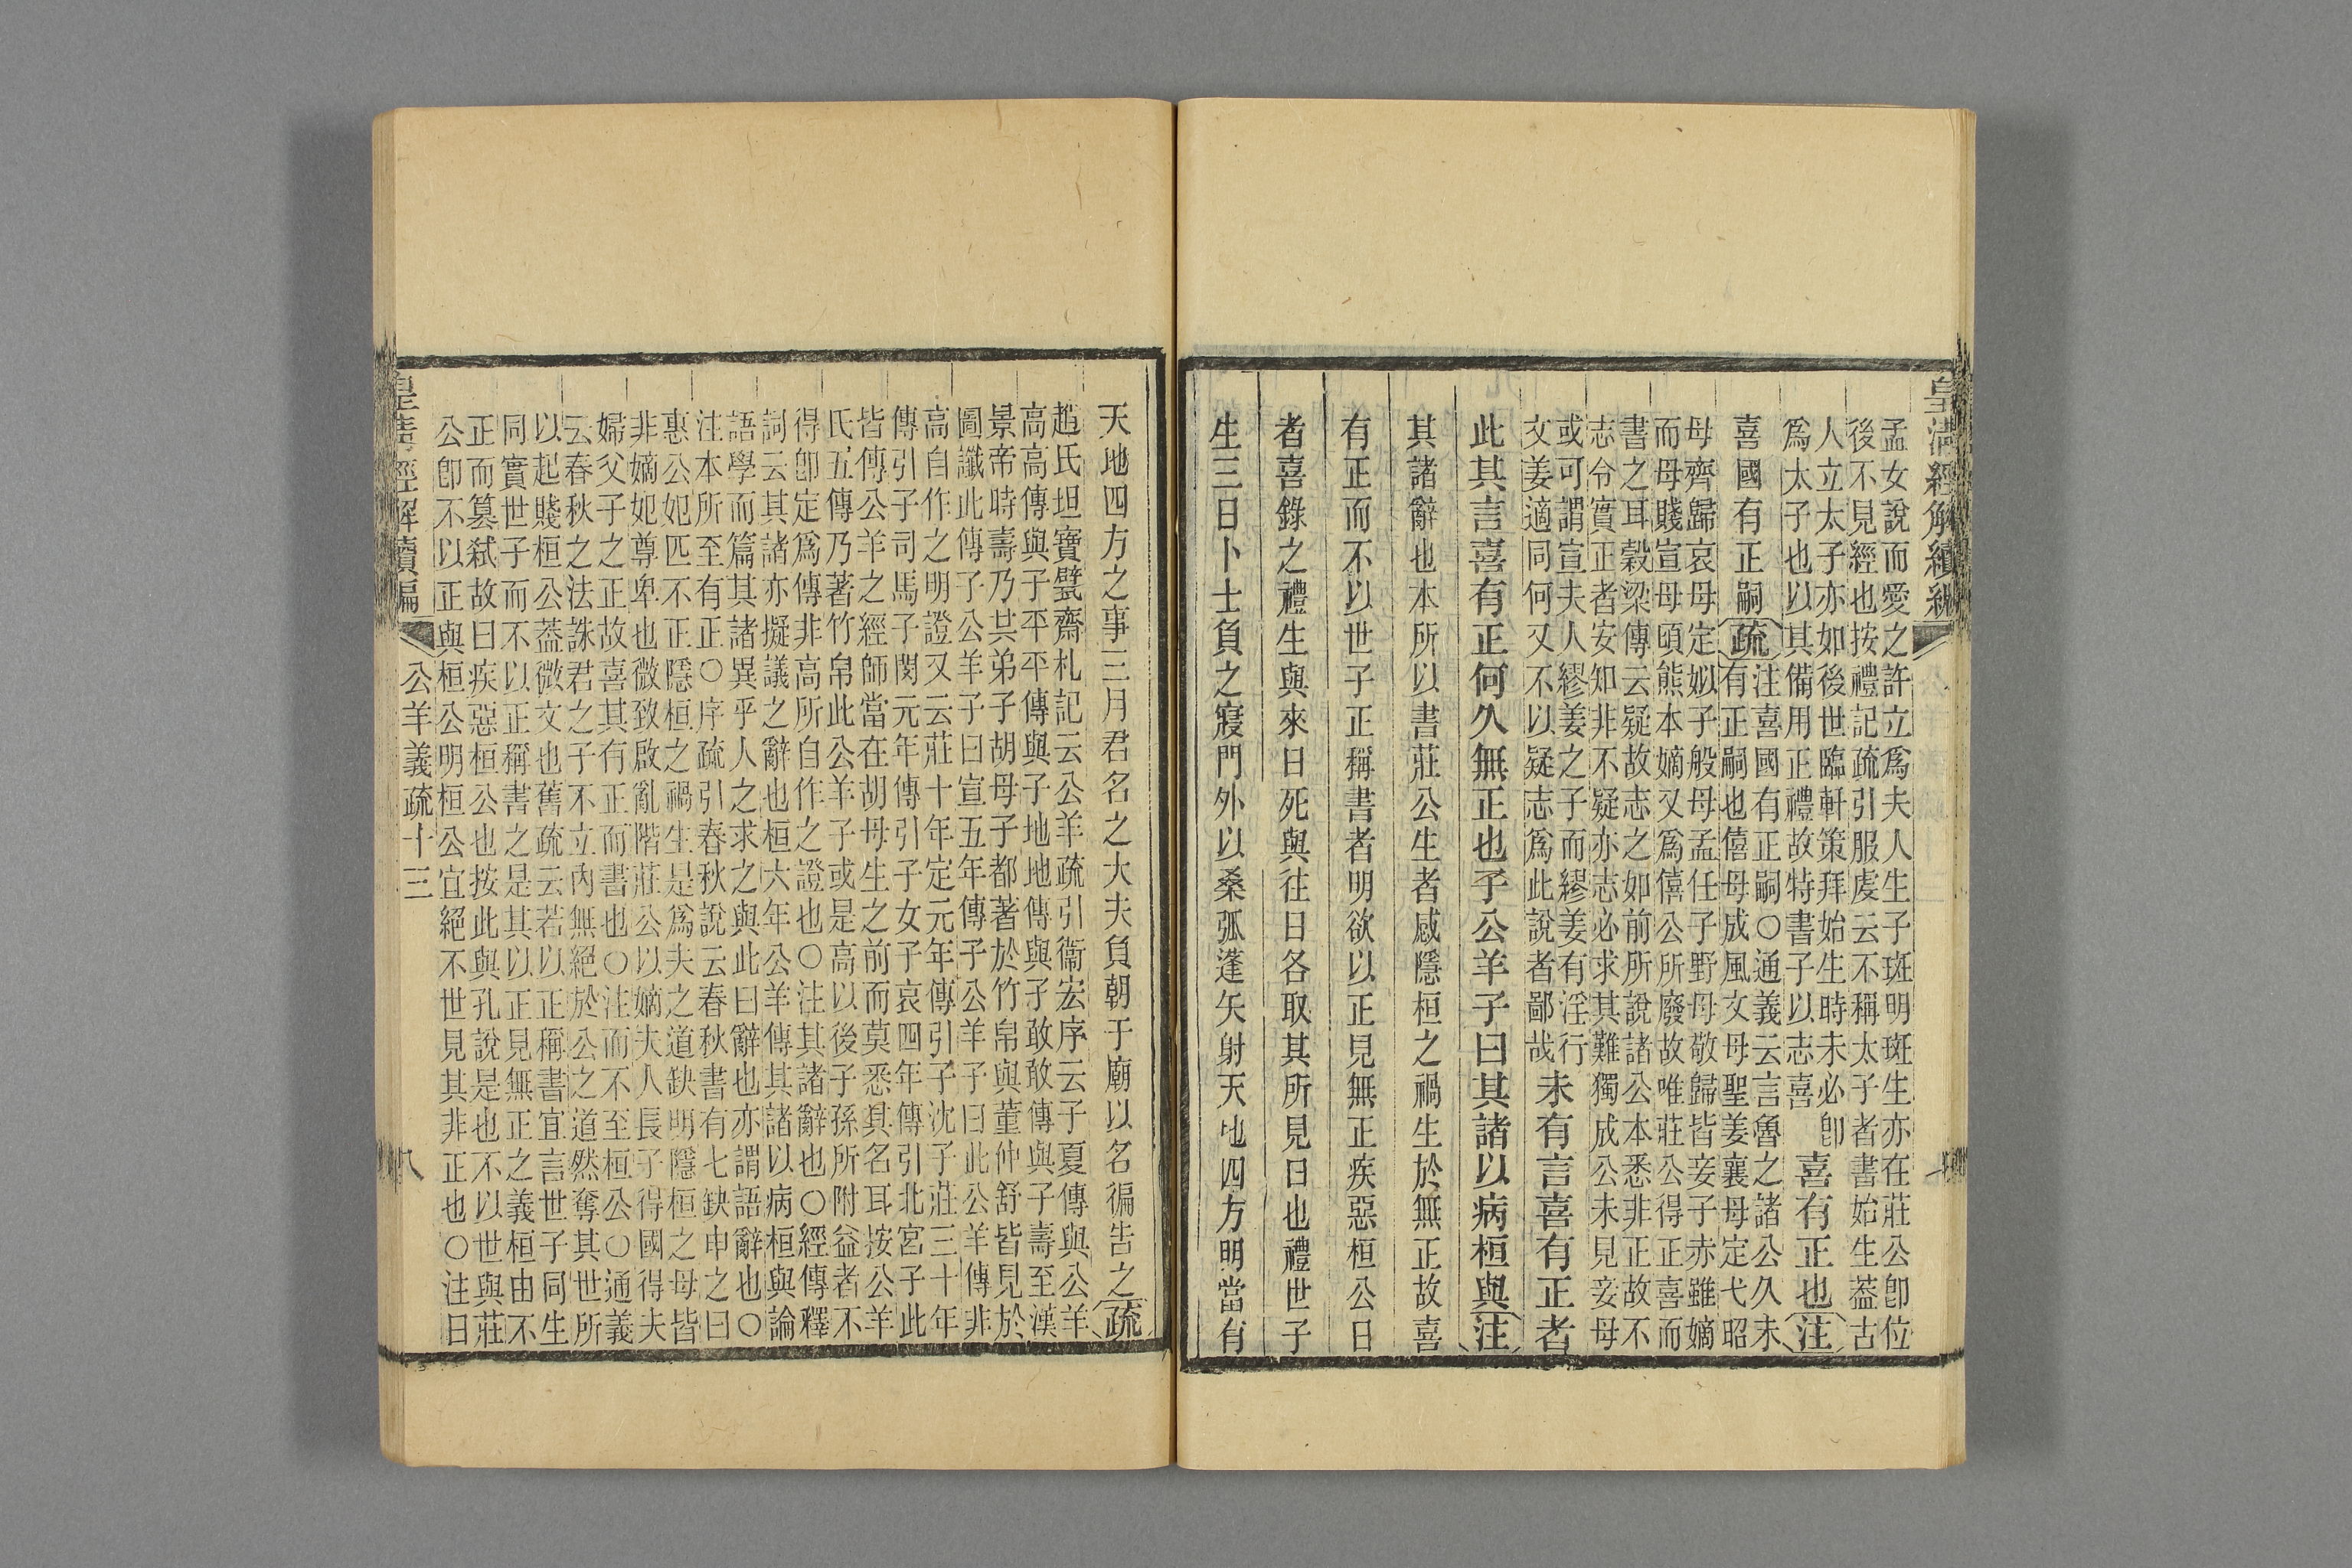 皇清經解續編
孟女說而愛之許立爲夫人生子斑明斑生亦在莊公卽位
後不見經也按禮記疏引服虔云不稱太子者書始生葢古
人立太子亦如後世臨軒策拜始生時未必卽
爲太子也以其備用正禮故特書子以志喜
喜有正也注
喜國有正嗣疏
注喜國有正嗣○通義云言魯之諸公久未
有正嗣也僖母成風文母聖姜襄母定弋昭
母齊歸哀母定姒子般母孟任子野母敬歸皆妾子赤雖嫡
而母賤宣母頃熊本嫡又爲僖公所廢故唯莊公得正喜而
書之耳榖梁傳云疑故志之如前所說諸公本悉非正故不
志令實正者安知非不疑亦志必求其難獨成公未見妾母
或可謂宣夫人繆姜之子而繆姜有淫行
文姜適同何又不以疑志爲此說者鄙哉
未有言喜有正者
此其言喜有正何久無正也子公羊子曰其諸以病桓與注
其諸辭也本所以書莊公生者感隱桓之禍生於無正故喜
有正而不以世子正稱書者明欲以正見無正疾惡桓公日
者喜錄之禮生與來日死與往日各取其所見日也禮世子
生三日卜士負之寢門外以桑弧蓬矢射天地四方明當有
天地四方之事三月君名之大夫負朝于廟以名徧告之疏
趙氏坦寶甓齋札記云公羊疏引衞宏序云子夏傳與公羊
高高傳與子平平傳與子地地傳與子敢敢傳與子壽至漢
景帝時壽乃共弟子胡母子都著於竹帛與董仲舒皆見於
圖讖此傳子公羊子曰宣五年傳子公羊子曰此公羊傳非
高自作之明證又云莊十年定元年傳引子沈子莊三十年
傳引子司馬子閔元年傳引子女子哀四年傳引北宮子此
皆傳公羊之經師當在胡母生之前而莫悉其名耳按公羊
氏五傳乃著竹帛此公羊子或是高以後子孫所附益者不
得卽定爲傳非高所自作之證也○注其諸辭也○經傳釋
詞云其諸亦擬議之辭也桓六年公羊傳其諸以病桓與論
語學而篇其諸異乎人之求之與此曰辭也亦謂語辭也○
注本所至有正○序疏引春秋說云春秋書有七缺申之曰
惠公妃匹不正隱桓之禍生是爲夫之道缺明隱桓之母皆
非嫡妃尊卑也微致啟亂階莊公以嫡夫人長子得國得夫
婦父子之正故喜其有正而書也○注而不至桓公○通義
云春秋之法誅君之子不立內無絕於公之道然奪其世所
以起賤桓公葢微文也舊疏云若以正稱書宜言世子同生
同實世子而不以正稱書之是其以正見無正之義桓由不
正而篡弒故曰疾惡桓公也按此與孔說是也不以世與莊
公卽不以正與桓公明桓公宜絕不世見其非正也○注日
皇清經解續編 公羊義疏十三 八